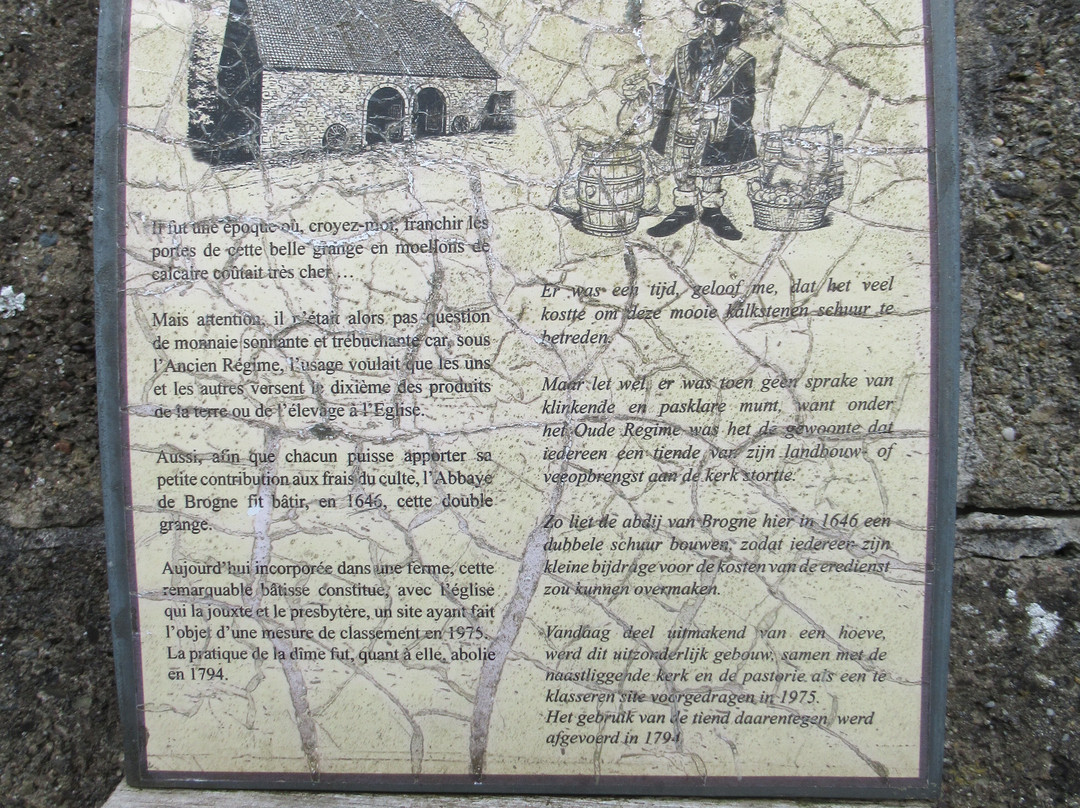 Il fut une époque où, croyez-moi, franchir les
portes de cette belle grange en moellons de
calcaire coûtait très cher …
Mais attention, il n'était alors pas question
de monnaie sonnante et trébuchante car, sous
l'Ancien Régime, l'usage voulait que les uns
et les autres versent le dixième des produits
de la terre ou de l'élevage à l'Eglise.
Aussi, afin que chacun puisse apporter sa
petite contribution aux frais du culte, l'Abbaye
de Brogne fit bâtir, en 1646, cette double
grange.
Aujourd'hui incorporée dans une ferme, cette
remarquable bâtisse constitue, avec l'église
qui la jouxte et le presbytère, un site ayant fait
l'objet d'une mesure de classement en 1975.
La pratique de la dîme fut, quant à elle, abolie
en 1794.
Er was een tijd, geloof me, dat het veel
kostte om deze mooie kalkstenen schuur te
betreden.
Maar let wel, er was toen geen sprake van
klinkende en pasklare munt, want onder
het Oude Regime was het de gewoonte dat
iedereen een tiende van zijn landbouw- of
veeopbrengst aan de kerk stortte.
Zo liet de abdij van Brogne hier in 1646 een
dubbele schuur bouwen, zodat iedereen zijn
kleine bijdrage voor de kosten van de eredienst
zou kunnen overmaken.
Vandaag deel uitmakend van een hoeve,
werd dit uitzonderlijk gebouw, samen met de
naastliggende kerk en de pastorie als een te
klasseren site voorgedragen in 1975.
Het gebruik van de tiend daarentegen, werd
afgevoerd in 1794